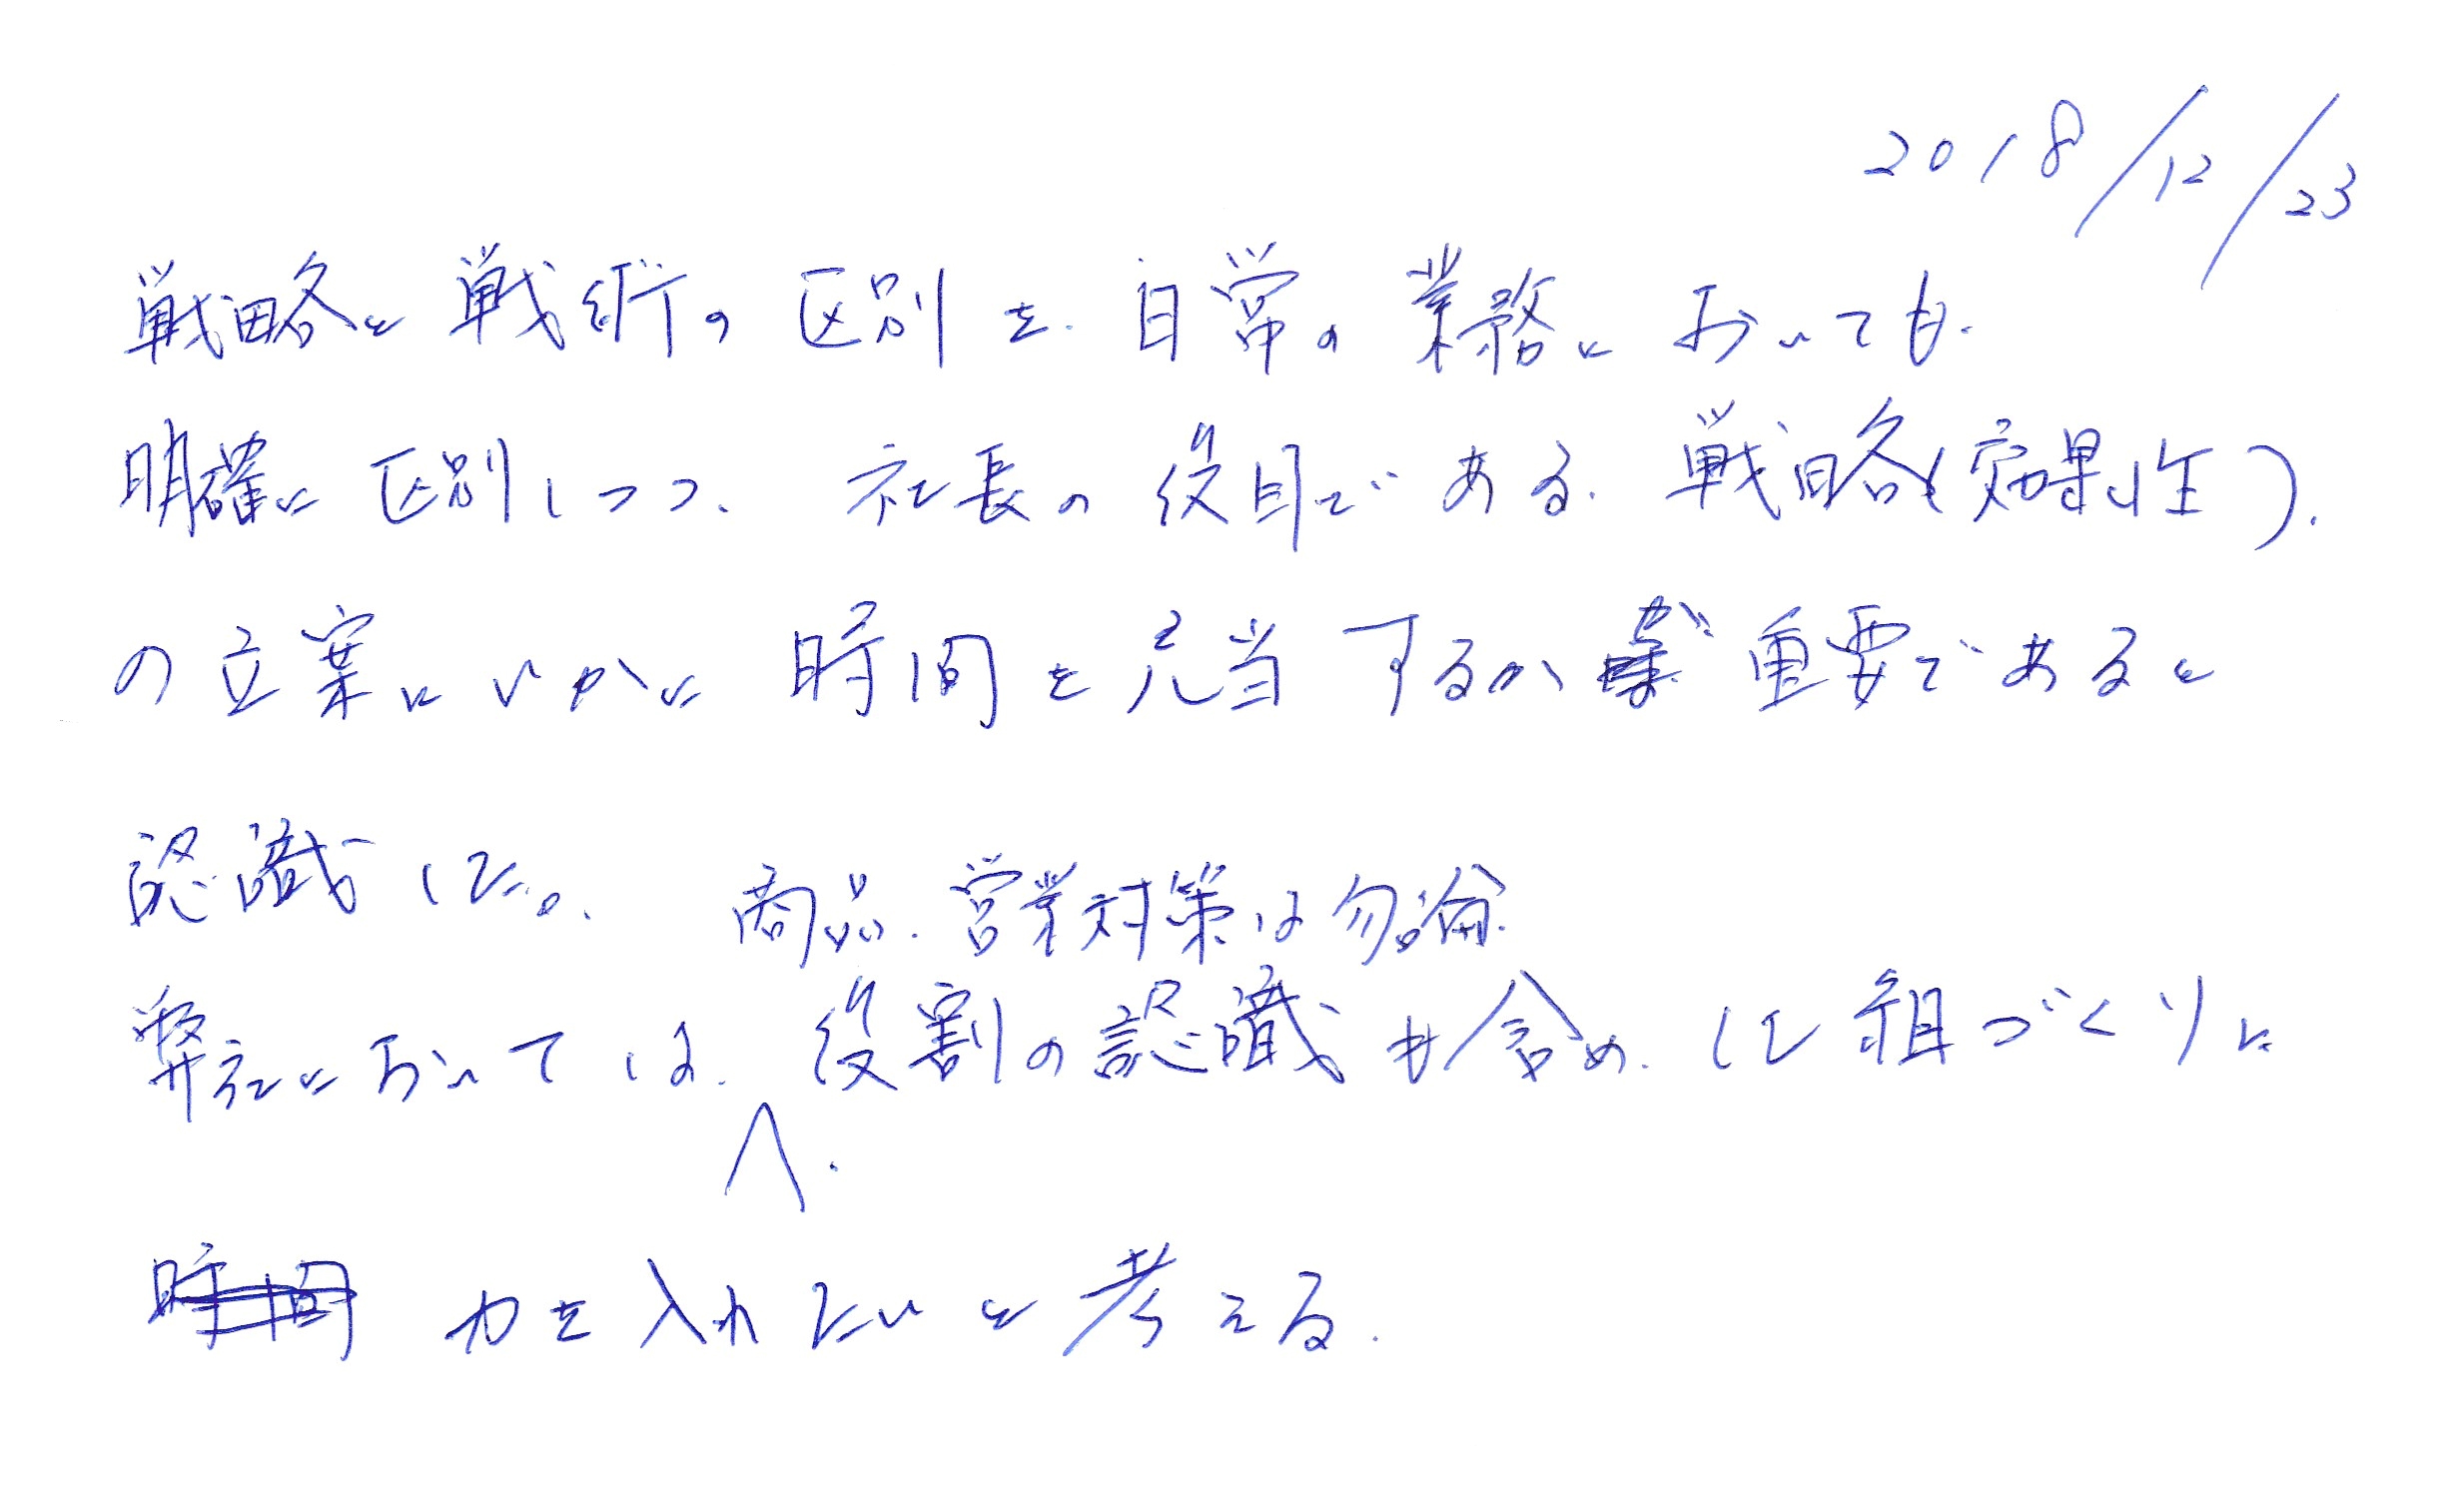 2018/12/23
戦略と戦術の区別を、日常の業務においても、
明確に区別しつつ、社長の役目である、戦略(効果性)、
の立案にいかに時間を充当するかが重要であると
認識した。
商品、営業対策は勿論、
弊社においては、役割の認識も含め、仕組づくりに
力を入れたいと考える。